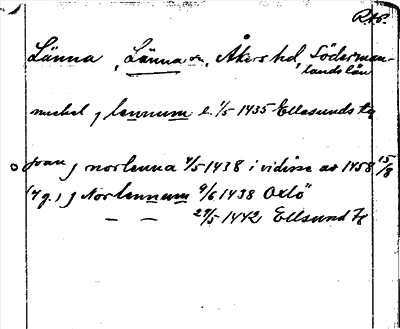 RAP.
Länna, Länna sn, Åkers hd, Söderman-
lands län
michel j lennum l. 1/5 1435 Ellesunds tg
joan j norlenna 4/5 1438 i vidisse av 1458 15/8
(4 g.) j Norlennum 9/6 1438 Oxlö
— — 29/5 1442 Ellsund